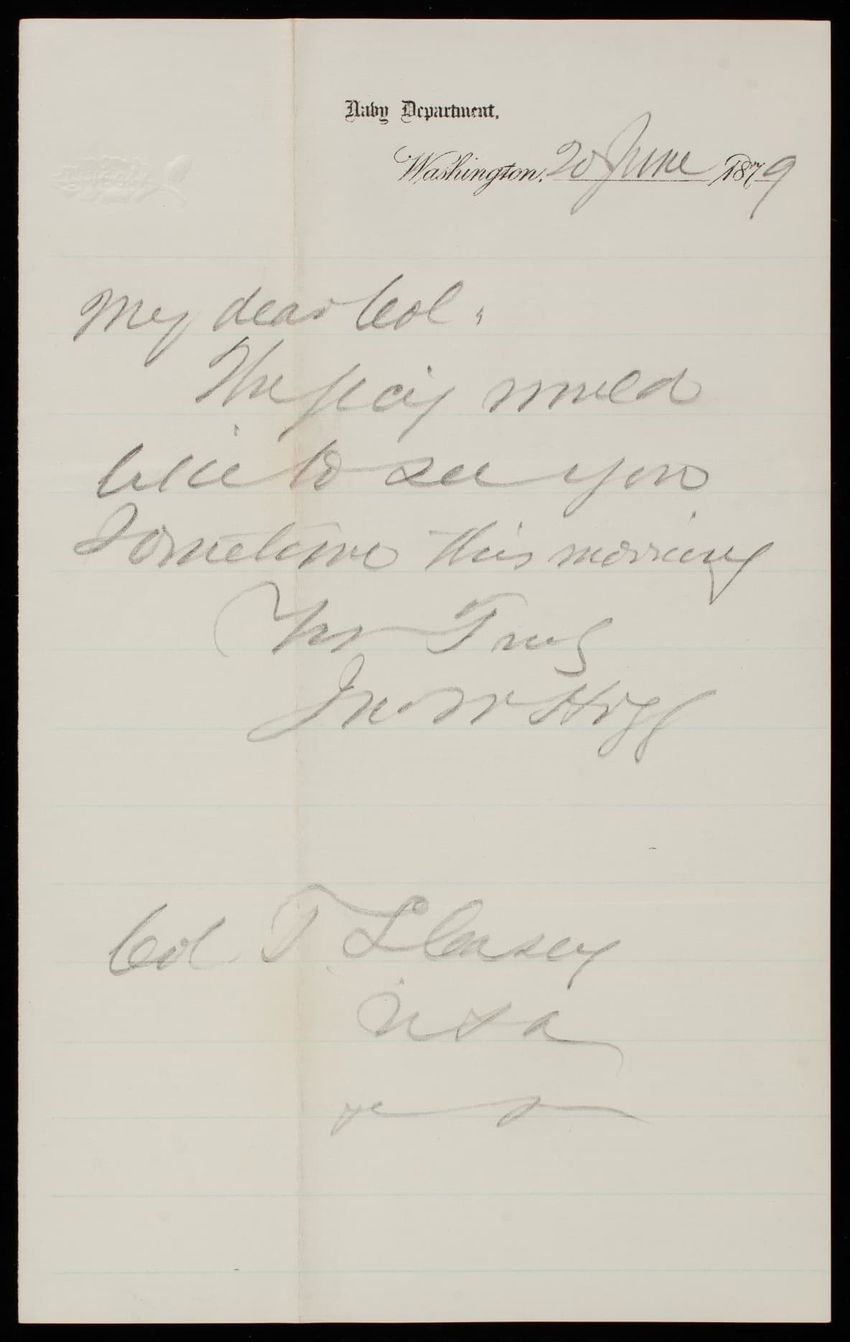 Navy Department,
Washington, 20 June 1879
My dear Col,
The Secy would
like to see you
Sometime this morning
Yrs Truly
Jno W Hogg
Col T L Casey
U S A